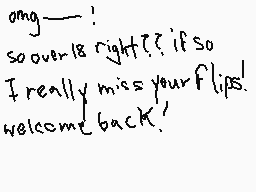 omg——!
so over 18 right?? if so
I really miss your flips!
welcome back!